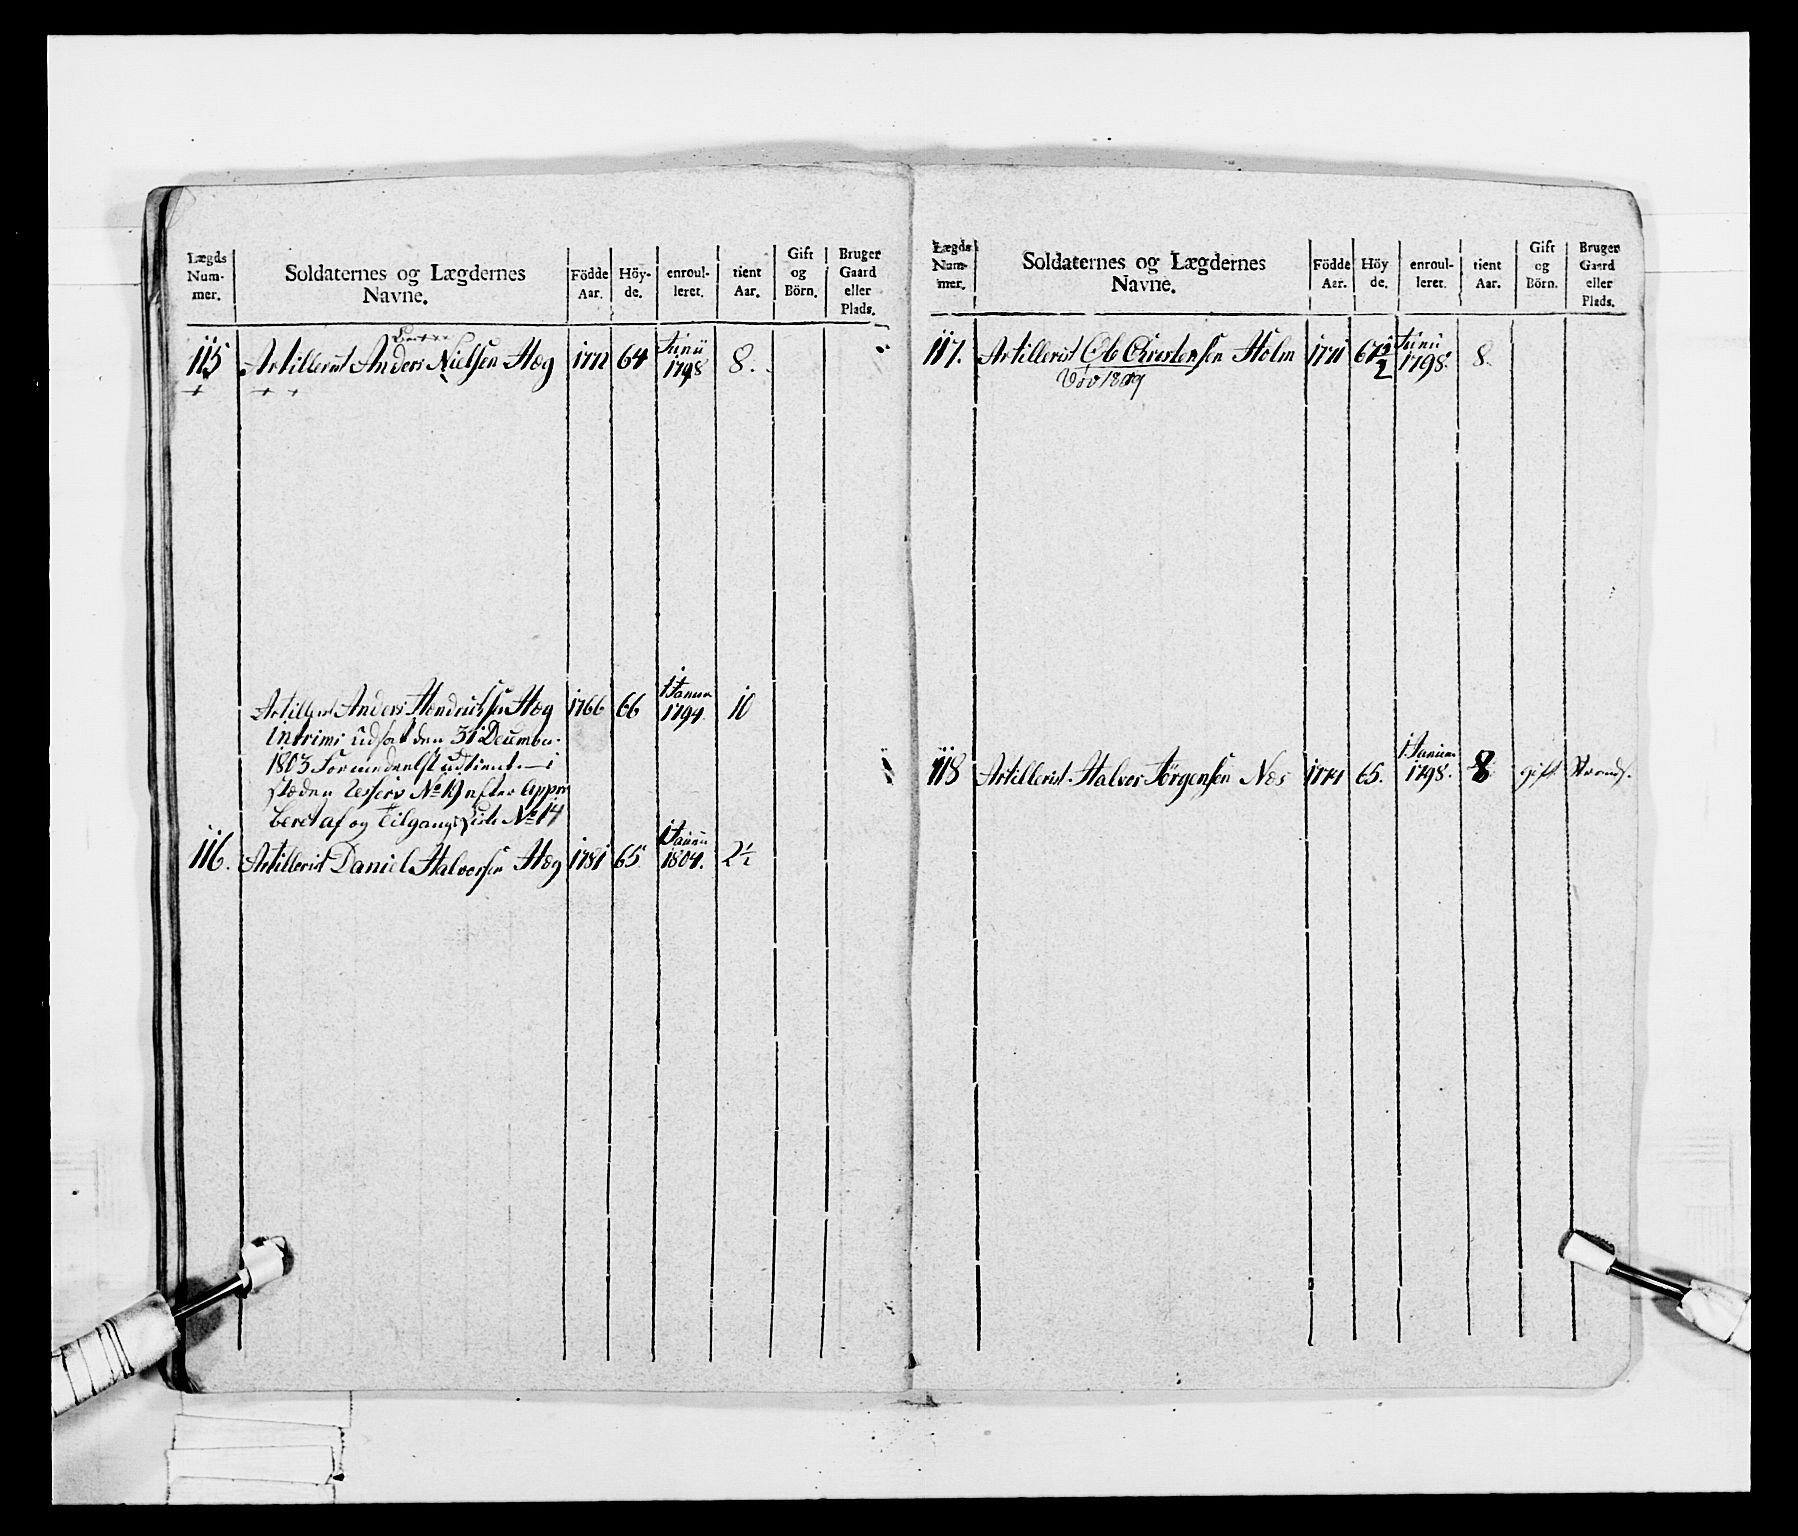 Lægds Num- mer. Soldaternes og Lægdernes Navne. Födde Aar. Höy- de. enroul- leret. tient Aar. Gift og Börn. Bruger Gaard eller Plads.
115 Artillerist Anders Nielsen Hæg 1772 64 Junii 1798 8.
Artillerist Anders Hendrichsen Hæg 1766 66 1 Januar 1794. 10
Intrims udsat den 31 December
1803 Formedelst udtient. i
stæden Reserv No 19 efter Appro
beret af og Tilgangs Liste No 14
116. Artillerist Daniel Halvorsen Hæg 1781 65. 1 Januar 1804. 2½
Lægds Num- mer. Soldaternes og Lægdernes Navne. Födde Aar. Höy de. enroul- leret. tient Aar. Gift og Börn. Bruger Gaard eller Plads.
117. Artillerist Ole Christensen Holm 1771 67½ Junii 1798. 8.
1809
118 Artillerist Halvor Jörgensen Næs 1771 65. 1 Januar 1798. 8 gift